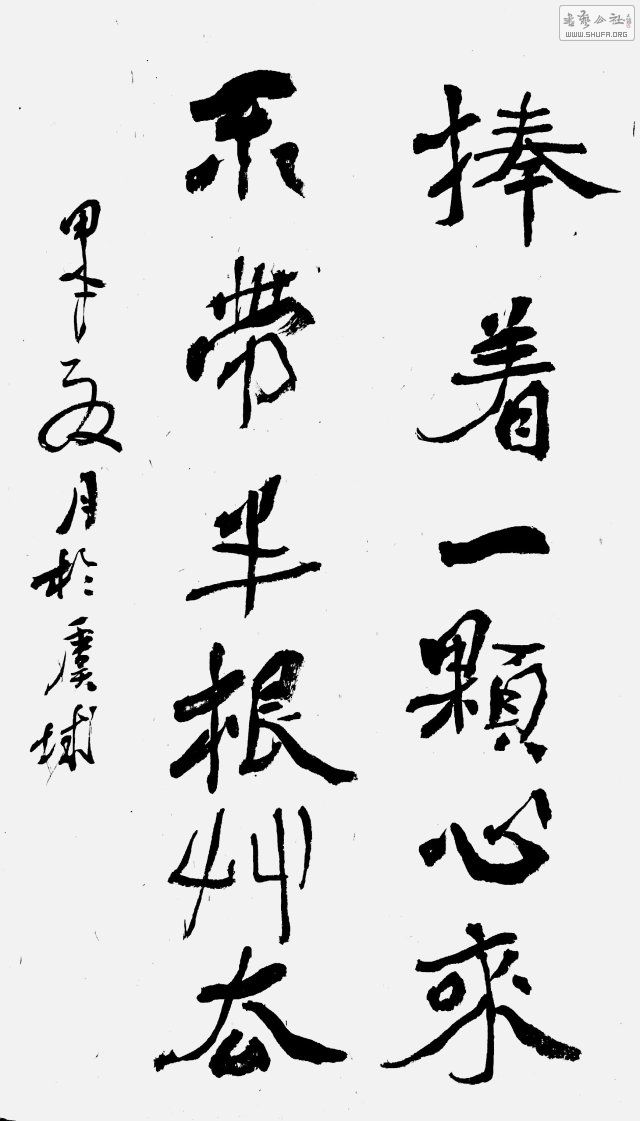 捧着一顆心来
不带半根艸去
甲午夏月於虞城
書藝公社
WWW.SHUFA.ORG